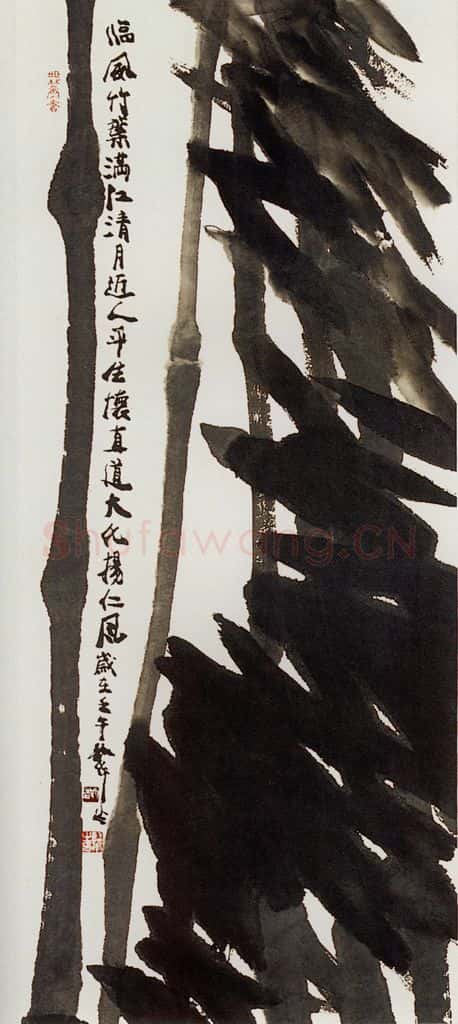 臨風竹葉滿江清月近人平生懷直道大化揚仁風歲在壬午
Shufawang.CN